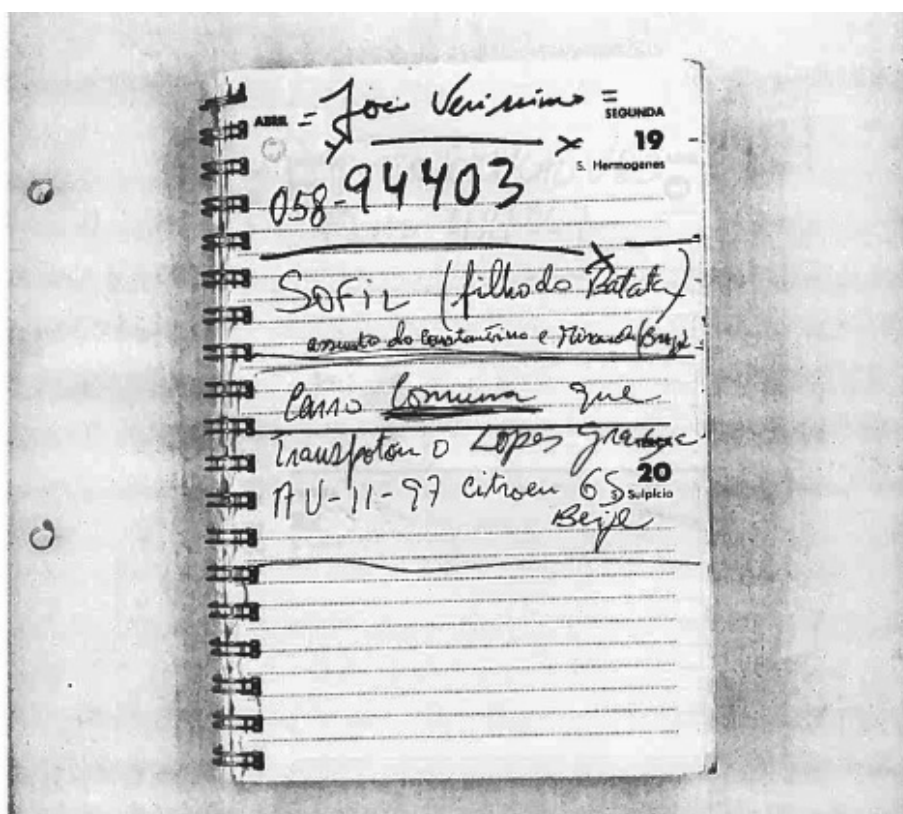 ABRIL = João Verissimo = SEGUNDA
19
S. Hermogenes
058-94403
SOFIL (filho do Batata)
assunto do Constantino e Miranda (Braga
Carro Comuna que
Transpotou o Lopes
20
S. Sulpício
AV-11-97 citroen GS
Beije